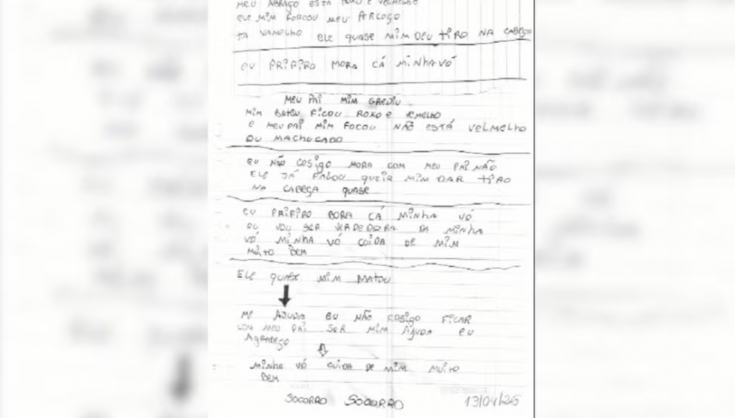 MEU ABRAÇO ESTÁ ROXO E VEMELHO
ELE MIM FORCOU MEU PERCOÇO
TA VAMELHO ELE QUASE MIM DEU TIRO NA CABEÇA
EU PRIFIRO MORA CÁ MINHA VÓ
MEU PAI MIM GREDIU
MIM BATEU FICOU ROXO E VEMELHO
O MEU PAI MIM FOCOU NÃO ESTÁ VELMELHO
OU MACHUCADO
EU NÃO COSIGO MORA COM MEU PAI NÃO
ELE JÁ FALOU QUEIR MIM DAR TIRO
NA CABEÇA QUASE
EU PRIFIRO CÁ MINHA VÓ
OU VOU SER DA MINHA
VÓ MINHA VÓ COIDA DE MIM
MUITO BEM
ELE QUASE MIM MATOU
ME AJUDA EU NÃO COSIGO FICAR
COM MEU PAI SER MIM AJUDA EU
AGRADEÇO
MINHA VÓ CUIDA DE MIM MUITO
BEM
SOCORRO SOCORRO 13/04/25